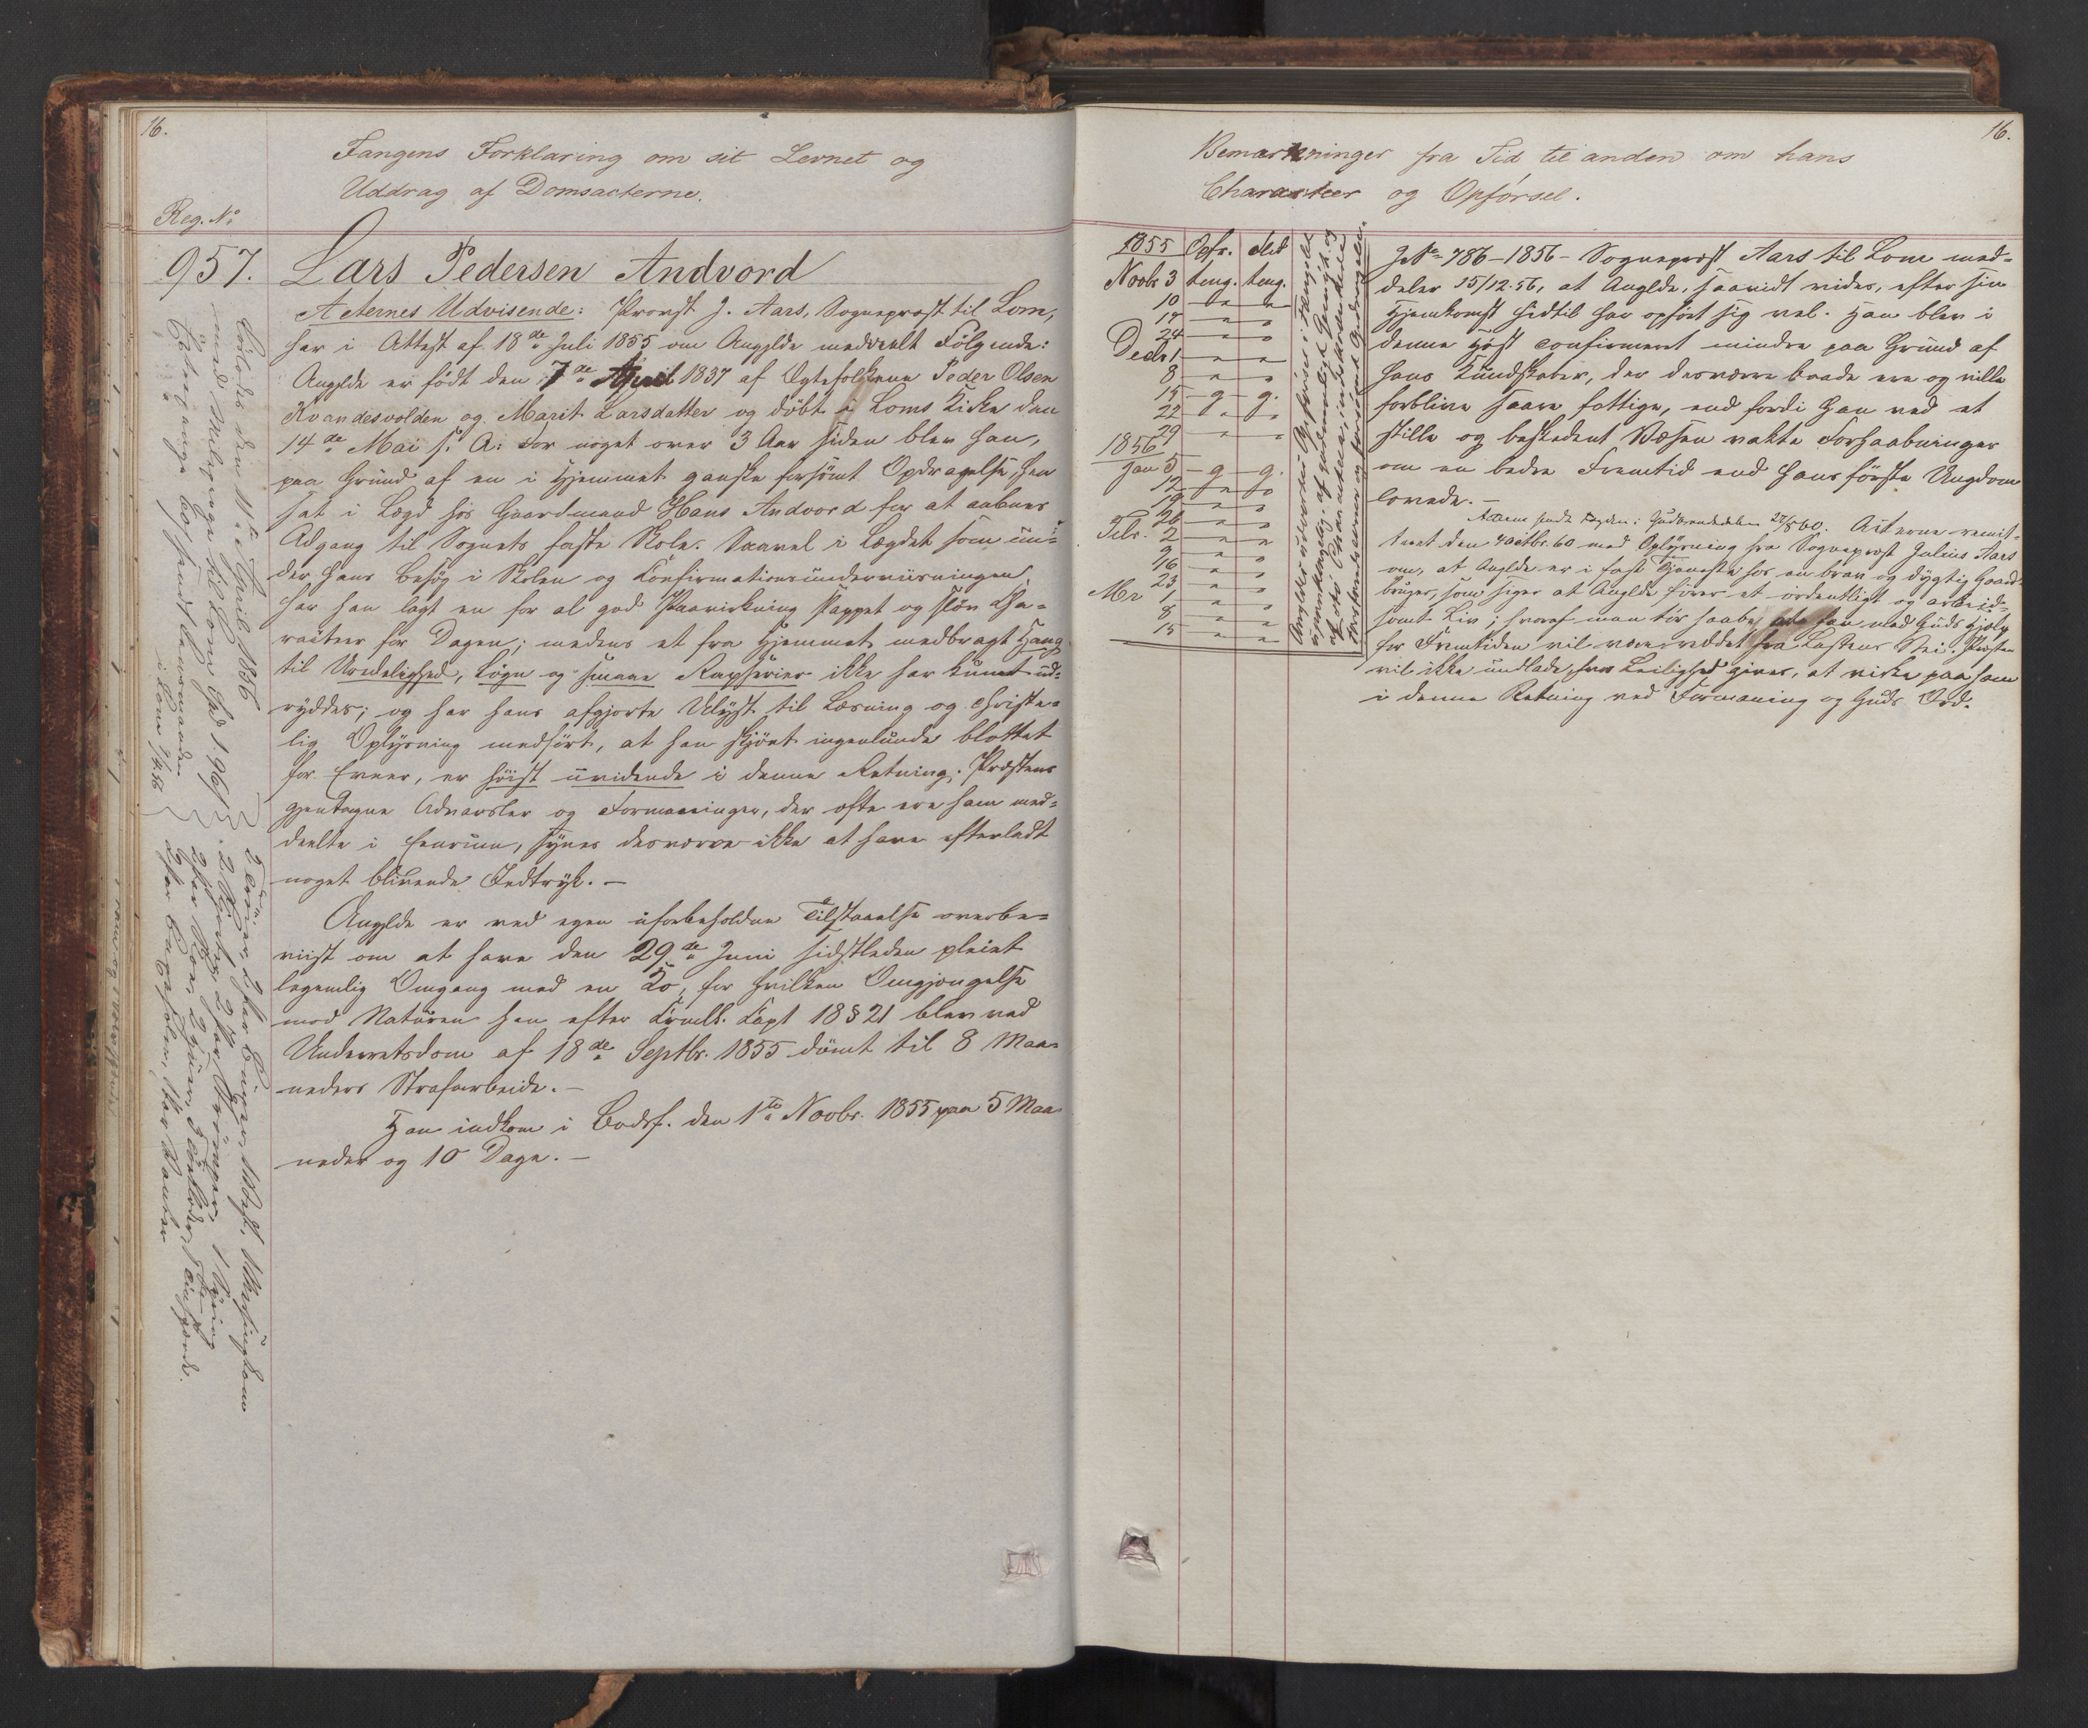 16.
Fangens Forklaring om sit Levnet og
Uddrag af Domsacterne.
Reg. No
957. Lars Pedersen Andvord
Acternes Udvisende: Provst J. Aars, Sogneprest til Lom,
har i Attest af 18de Juli 1855 om Angjldte meddeelt Følgende:
Angjldte er født den 7de April 1837 af Ægtefolkene Peder Olsen
Kvandesvolden og Marit Larsdatter og døbt i Loms Kirke den
14de Mai s. A. For noget over 3 Aar siden blev han,
paa Grund af en i Hjemmet ganske forsømt Opdragelse, hen
sat i Lægd hos Gaardmand Hans Andvord for at aabnes
Adgang til Sognets faste Skole. Saavel i Lægdet som un-
der hans Besøg i Skolen og Confirmationsunderviisningen
har han lagt en for al god Paavirkning slappet og sløv Cha-
racteer for Dagen; medens et fra Hjemmet medbragt Hang
til Uredelighed, Løgn og smaae Rapserier ikke har kunnet ud-
ryddes; og har hans afgjorte Ulyst til Læsning og christe-
lig Oplysning medført, at han skjønt ingenlunde blottet
for Evner, er høist uvidende i denne Retning. Præstens
gjentagne Advarsler og Formaninger, der ofte ere ham med-
deelte i Eenrum, synes desværre ikke at have efterladt
noget blivende Indtryk. —
Angjldte er ved egen uforbeholdne Tilstaaelse overbe-
viist om at have den 29de Juni sidstleden pleiet
legemlig Omgang med en Ko, for hvilken Omgjængelse
mod Naturen han efter Crmll. Capt 18 § 21 blev ved
Underretsdom af 18de Septbr. 1855 dømt til 8 Maa-
neders Strafarbeide. —
Han indkom i Bodsf. den 1ste Novbr. 1855 paa 5 Maa-
neder og 10 Dage. —
Løslodes den 11te April 1856
med Reisepenge til Lom
i Lom
16.
Bemærkninger fra Tid til anden om hans
Characteer og Opførsel.
1855 Opfr. Flid
Novbr 3 temg. temg.
10 " "
17 " "
24 " "
Decbr 1 " "
8 " "
15 g g.
22 " "
29 " "
1856
Jan 5 g g.
12 " "
19 " "
26 " "
Febr. 2 " "
9 " "
16 " "
23 " "
Mr 1 " "
8 " "
15 " "
J No 786 - 1856 - Sogneprest Aars til Lom med-
deler 15/12 56, at Angjldte, saavidt vides, efter sin
Hjemkomst hidtil har opført sig vel. Han blev i
denne Høst confirmeret mindre paa Grund af
hans Kundskaber, der desværre baade ere og ville
forblive saare fattige, end fordi han ved et
stille og beskedent Væsen vakte Forhaabninger
om en bedre Fremtid end hans første Ungdom
lovede. —
Acterne sendt Fogden i Gudbrandsdalen 27/8 60. Acterne remit-
teret den 4 Octbr. 60 med Oplysning fra Sogneprest Julius Aars
om, at Angjldte er i fast Tjeneste hos en brav og dygtig Gaard-
bruger, som siger at Angjldte fører et ordentligt og arbeid-
somt Liv; hvoraf man tør haabe, at han med Guds Hjælp
for Fremtiden vil være reddet fra Lastens Vei. Præsten
vil ikke undlade, hvor Leilighed gives, at virke paa ham
i denne Retning ved Formaning og Guds Ord.